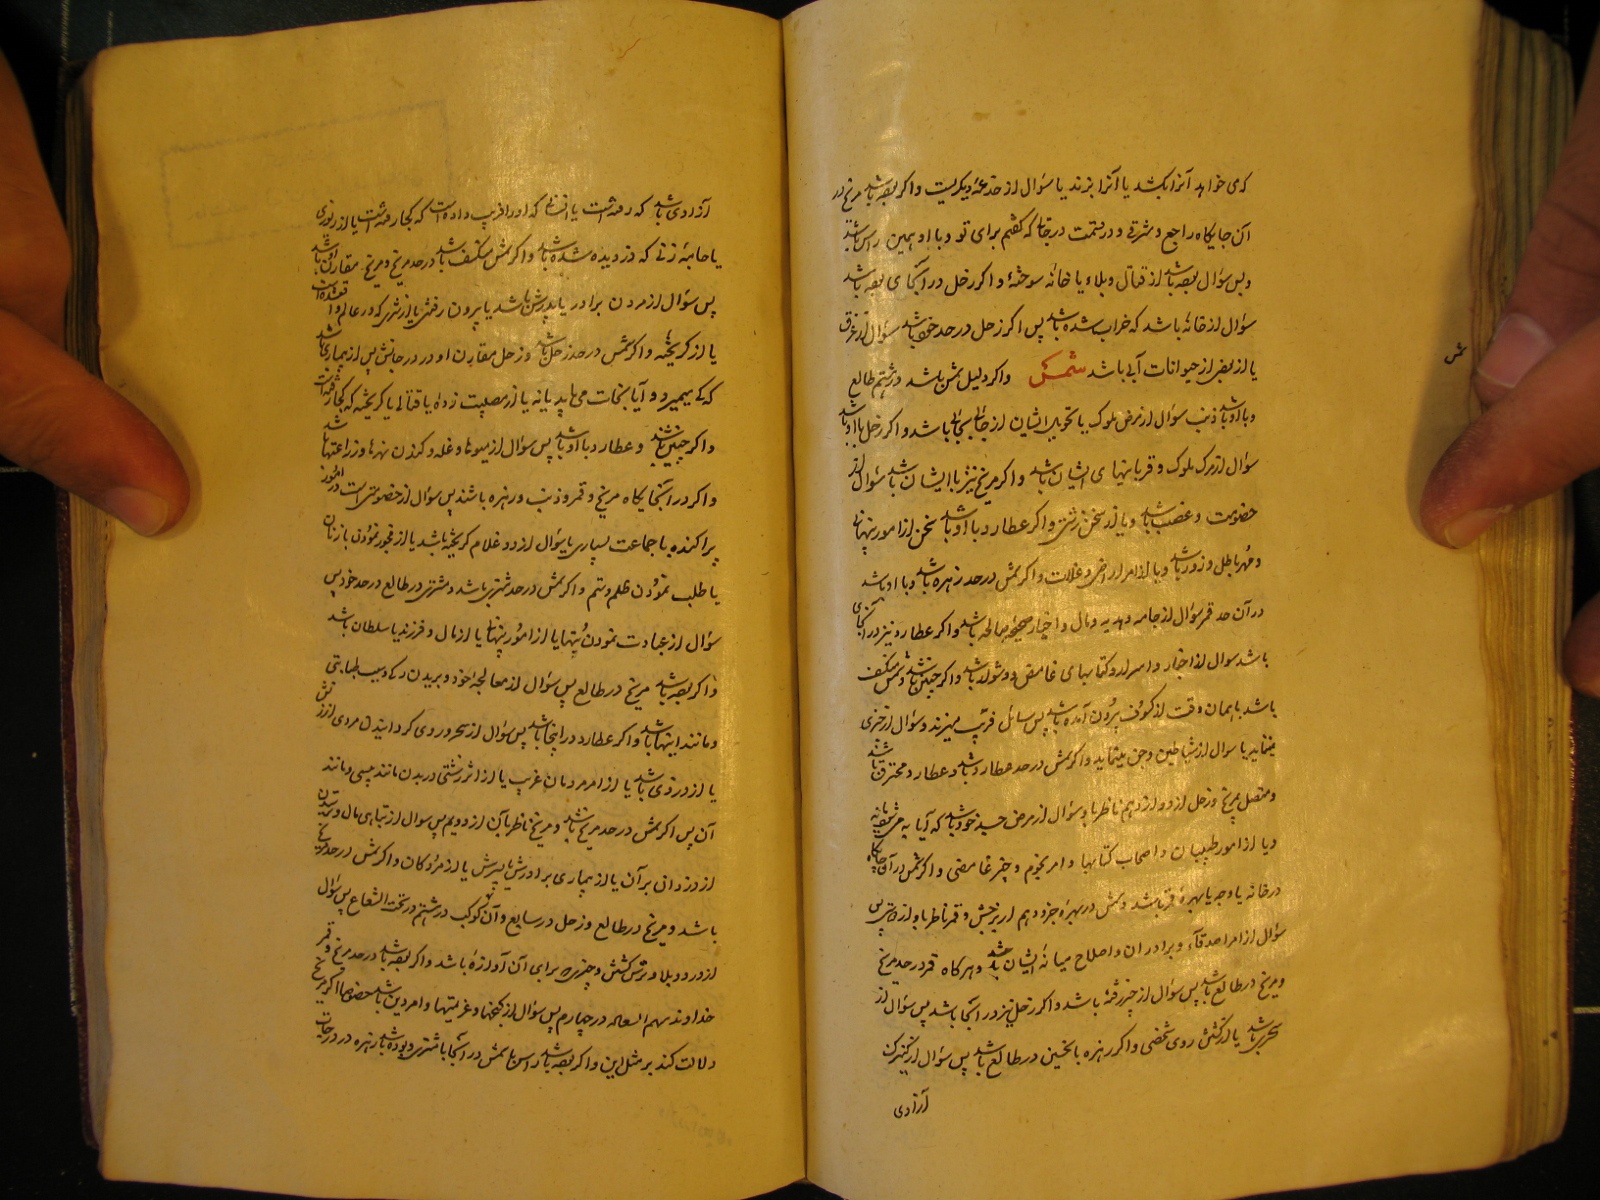 که می خواهد آنرا بکشد یا آنرا بزند یا سؤال از خدعهٔ دیگریست و اگر بوجه باشد مریخ در
آن جایگاه راجع و مشرق و در قسمت درجهٔ که گفتم برای تو و با او همین راس باشد
و پس سؤال بوجه باشد از قتال و بلاء یا خانهٔ سوخته و اگر زحل در آنجای بوجه باشد
سؤال از خانهٔ باشد که خراب شده باشد پس اگر زحل در حد خود باشد سؤال از غرق
یا از بعض از حیوانات آبی باشد شمس و اگر دلیل شمس باشد در هشتم طالع
و با او باشد ذنب سؤال از مرض ملوک یا تحویل ایشان از جائی بجائی باشد و اگر زحل با او باشد
سؤال از مرگ ملوک و قربانیهای ایشان باشد و اگر مریخ نیز با ایشان باشد سؤال از
خصومت و غضب باشد و یا از سخن زشتی و اگر عطارد با او باشد سخن از امور پنهانی
و مُهر باطل و زور باشد و یا از امر اراضی و غلات و اگر شمس در حد زهره باشد و با او باشد
در آن حد قمر سؤال از جامه و هدیه و مال و اخبار صحیحهٔ صالحه باشد و اگر عطارد نیز در آنجای
باشد سوال از اخبار و اسرار و کتابهای غامض و باشد و اگر چنین باشد و شمس منکسف
باشد یا همان وقت از کسوف بیرون آمده باشد پس سائل فریب میزند و سؤال از چیزی
مینماید یا سوال از شیاطین و جن مینماید و اگر شمس در حد عطارد باشد و عطارد محترق باشد
و متصل بمریخ و زحل از دوازدهم ناظر باو سؤال از مرض جسد خود باشد که آیا به میشود یا نه
و یا از امور طبیبان و اصحاب کتابها و امر نجوم و چیز غامضی و اگر شمس در آن جایگاه
در خانه یا وجه یا بهرهٔ قمر باشد و شمس در بهرهٔ جزو دهم از برجش و قمر ناظر باو از پس
سؤال از امر اصدقاء و برادران و اصلاح میانهٔ ایشان باشد و هرگاه قمر در حد مریخ
و مریخ در طالع باشد پس سؤال از چیز رفته باشد و اگر زحل نیز در آنجا باشد پس سؤال از
سحری باشد یا از کشتن روی شخصی و اگر زهره با نحسین در طالع باشد پس سؤال از کنیزک
آزادی
شمس
آزادی باشد که رفته است یا انسانی که او را فریب داده است که کجا رفته است یا از زیوری
یا جامهٔ زنی که دزدیده شده باشد و اگر شمس منکسف باشد در حد مریخ و مریخ مقارن او باشد
پس سؤال از مردن برادر یا پدرش باشد یا بیرون رفتن یا از شهری که در عالم واقع شده است
یا از گریخته و اگر شمس در حد زحل باشد و زحل مقارن او در درجاتش پس از بیماری باشد
که کی میمیرد و آیا نجات می یابد یا نه یا از مصیبت زده یا قتالی یا گریخته که کجا رفته است
و اگر چنین باشد و عطارد با او باشد پس سؤال از میوها و غله و کندن نهرها و زراعتها باشد
و اگر در آنجایگاه مریخ و قمر و ذنب و زهره باشند پس سؤال از خصومتی است در امور
پراکنده با جماعت بسیاری یا سؤال از دو غلام گریخته باشد یا از فجور نمودن با زنان
یا طلب نمودن ظلم و ستم و اگر شمس در حد مشتری باشد و مشتری در طالع در حد خود پس
سؤال از عبادت نمودن پنهان یا از امور پنهانی یا از مال و فرزند یا سلطان باشد
و اگر بوجه باشد مریخ در طالع پس سؤال از معالجهٔ خود و بریدن رک و سبب طبابتی
و مانند اینها باشد و اگر عطارد در اینجا باشد پس سؤال از سحر و روی گردانیدن مردی از زنش
یا از دزدی باشد یا از امر مردمان غریب یا از اثر زشتی در بدن مانند پیسی و مانند
آن پس اگر شمس در حد مریخ باشد و مریخ ناظر بآن از دویم پس سوال از تباهی مال و ترسیدن
از دزدان بر آن یا از بیماری برادرش یا پدرش یا از مردگان و اگر شمس در حد مریخ
باشد و مریخ در طالع و زحل در سابع و آن کوکب در هشتم در تحت الشعاع پس سؤال
از درد و بلا و ترس کشتن و چیزی برای آن آوازه باشد و اگر بوجه باشد در حد مریخ و قمر
خداوند سهم السعاده در چهارم پس سؤال از گنجها و عزیمتها و امر دین باشد خصوصا اگر مریخ
دلالت کند بر مثل این و اگر بوجه باشد راس با شمس در آنجا با مشتری و بوده باشد زهره در درجات